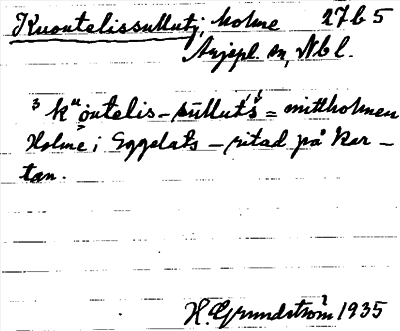 Kuoutelissullutj, holme 27 b 5
Arjepl. sn, Nbl.
³ kᵘoutelis-sūlluťś = mittholmen
Holme i Eggelats - ritad på kar-
tan.
H. Grundström 1935